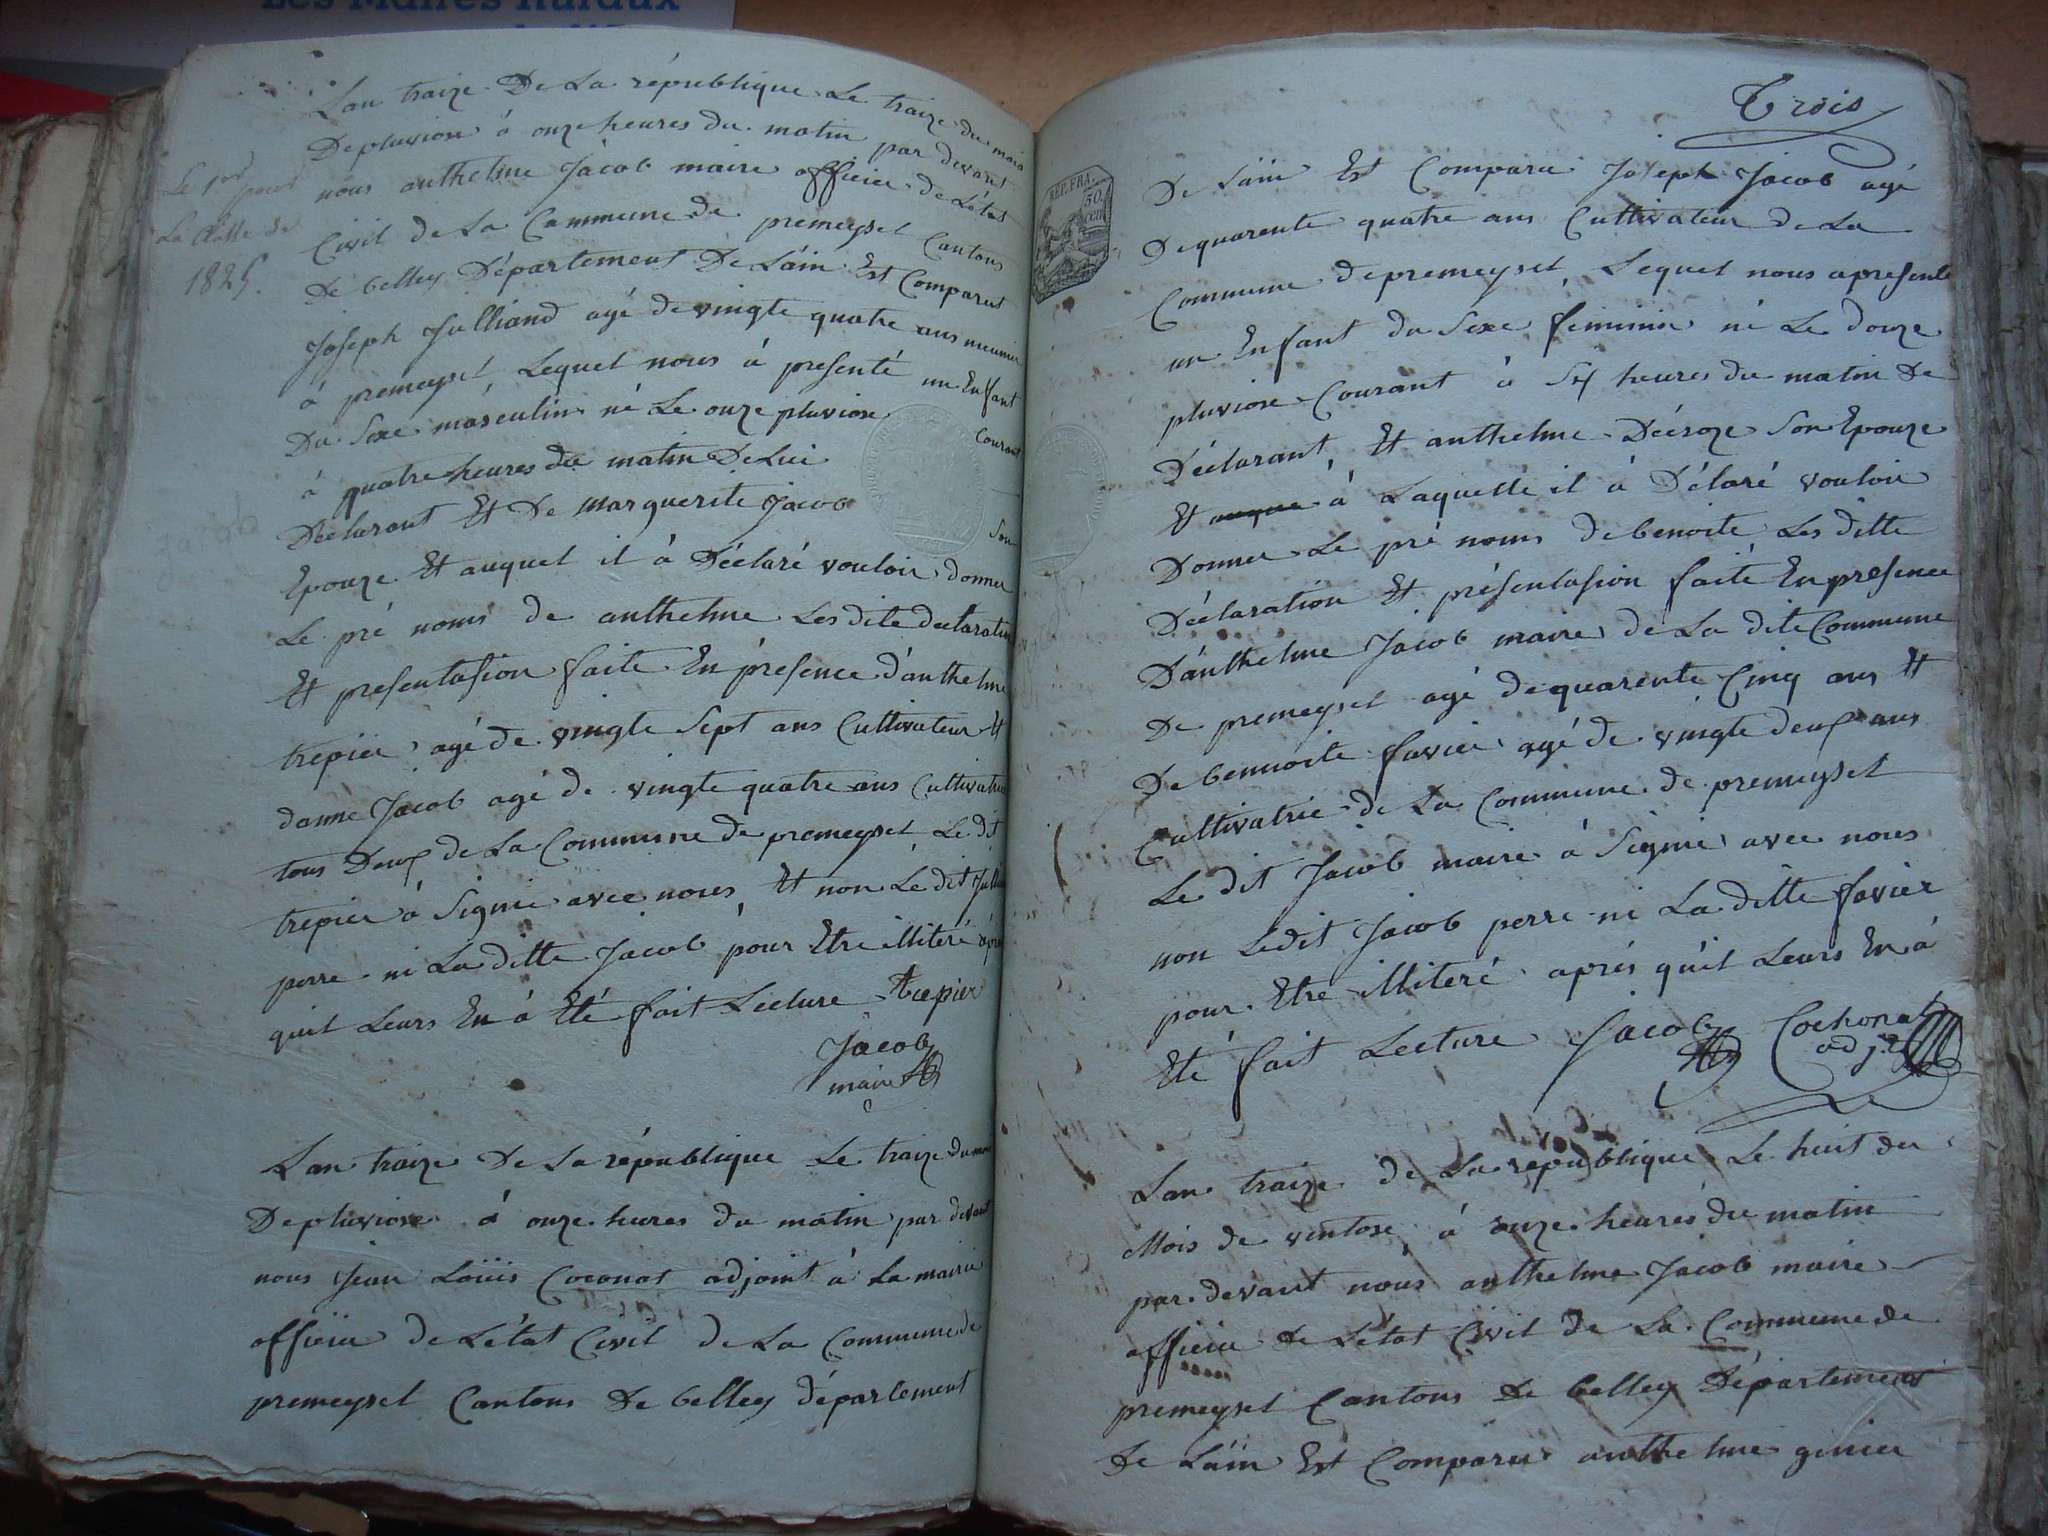 Les Maires Ruraux
Lan traize De La république Le traize du mois
Depluviose à onze heures du matin par devant
nous anthelme Jacob maire officier de Letat
Civil de La Commune de premeysel Cantons
De belley Département De Lain Est Comparut
Joseph Julliand agé de vingte quatre ans meunier
à premeysel, Lequel nous à presenté un Enfant
Du Sexe masculin né Le onze pluviose Courant
à quatre heures du matin De Lui
Déclarant Et De marguerite Jacob Son
Epouze Et auquel il à Déclaré vouloir donner
Le pré noms de anthelme Les dite declaration
Et presentasion faite En présence d'anthelme
trepier agé de vingte Sept ans Cultivateur Et
danne Jacob agé de vingte quatre ans Cultivatrice
tous Deux de La Commune de premeysel, Le dit
trepier à Signé avec nous, Et non Le dit Julliand
perre ni La ditte Jacob pour Etre illiteré après
quil Leurs En à Eté fait Lecture Trepier
Jacob
maire
Le 1er pour
La Classe de
1825.
Lan traize De La république Le traize du mois
Depluviose à onze heures du matin par devant
nous Jean Loüis Coconat adjoint à La mairie
officier de Létat Civil de La Commune de
premeysel Cantons De belley département
Trois
REP. FRA.
50.
cen
De Lain Est Comparu Joseph Jacob agé
Dequarente quatre ans Cultivateur de La
Commune depremeysel, Lequel nous apresenté
un Enfant du Sexe féminin né Le douze
pluviose Courant à Six heures du matin De
Déclarant, Et anthelme Déroze Son Epouze
Et auque à Laquelle il à Déclaré vouloir
Donner Le pré noms de benoite Les ditte
Déclaration Et présentasion faite En presence
D'anthelme Jacob maire de La dite Commune
De premeysel agé dequarente Cinq ans Et
De bennoite favier agé de vingte deux ans
Cultivatrie de La Commune de premeysel
Le dit Jacob maire à Signé avec nous
non Ledit Jacob perre ni La ditte favier
pour Etre illiteré après quil Leurs En à
Eté fait Lecture Jacob Cochonat
adjt
Lan traize de La république Le huit du
Mois de ventose, à onze heures du matin
par devant nous anthelme Jacob maire
officier De Létat Civil De La Commune de
premeysel Cantons De belley Département
De Lain Est Comparu anthelme ginier